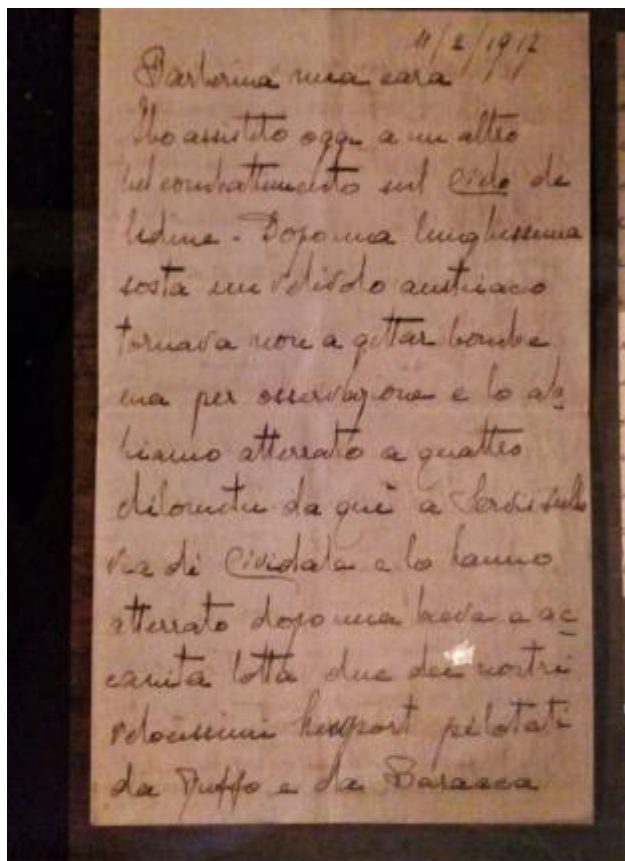 11/2/1917
Barberina mia cara
Ho assistito oggi a un altro
bel combattimento sul cielo di
Udine - Dopo una lunghissima
sosta un velivolo austriaco
tornava non a gettar bombe
ma per osservazione e lo ab
biamo atterrato a quattro
chilometri da qui a sulla
via di Cividale e lo hanno
atterrato dopo una breve e ac
canita lotta due dei nostri
velocissimi Nieuport pilotati
da Ruffo e da Baracca